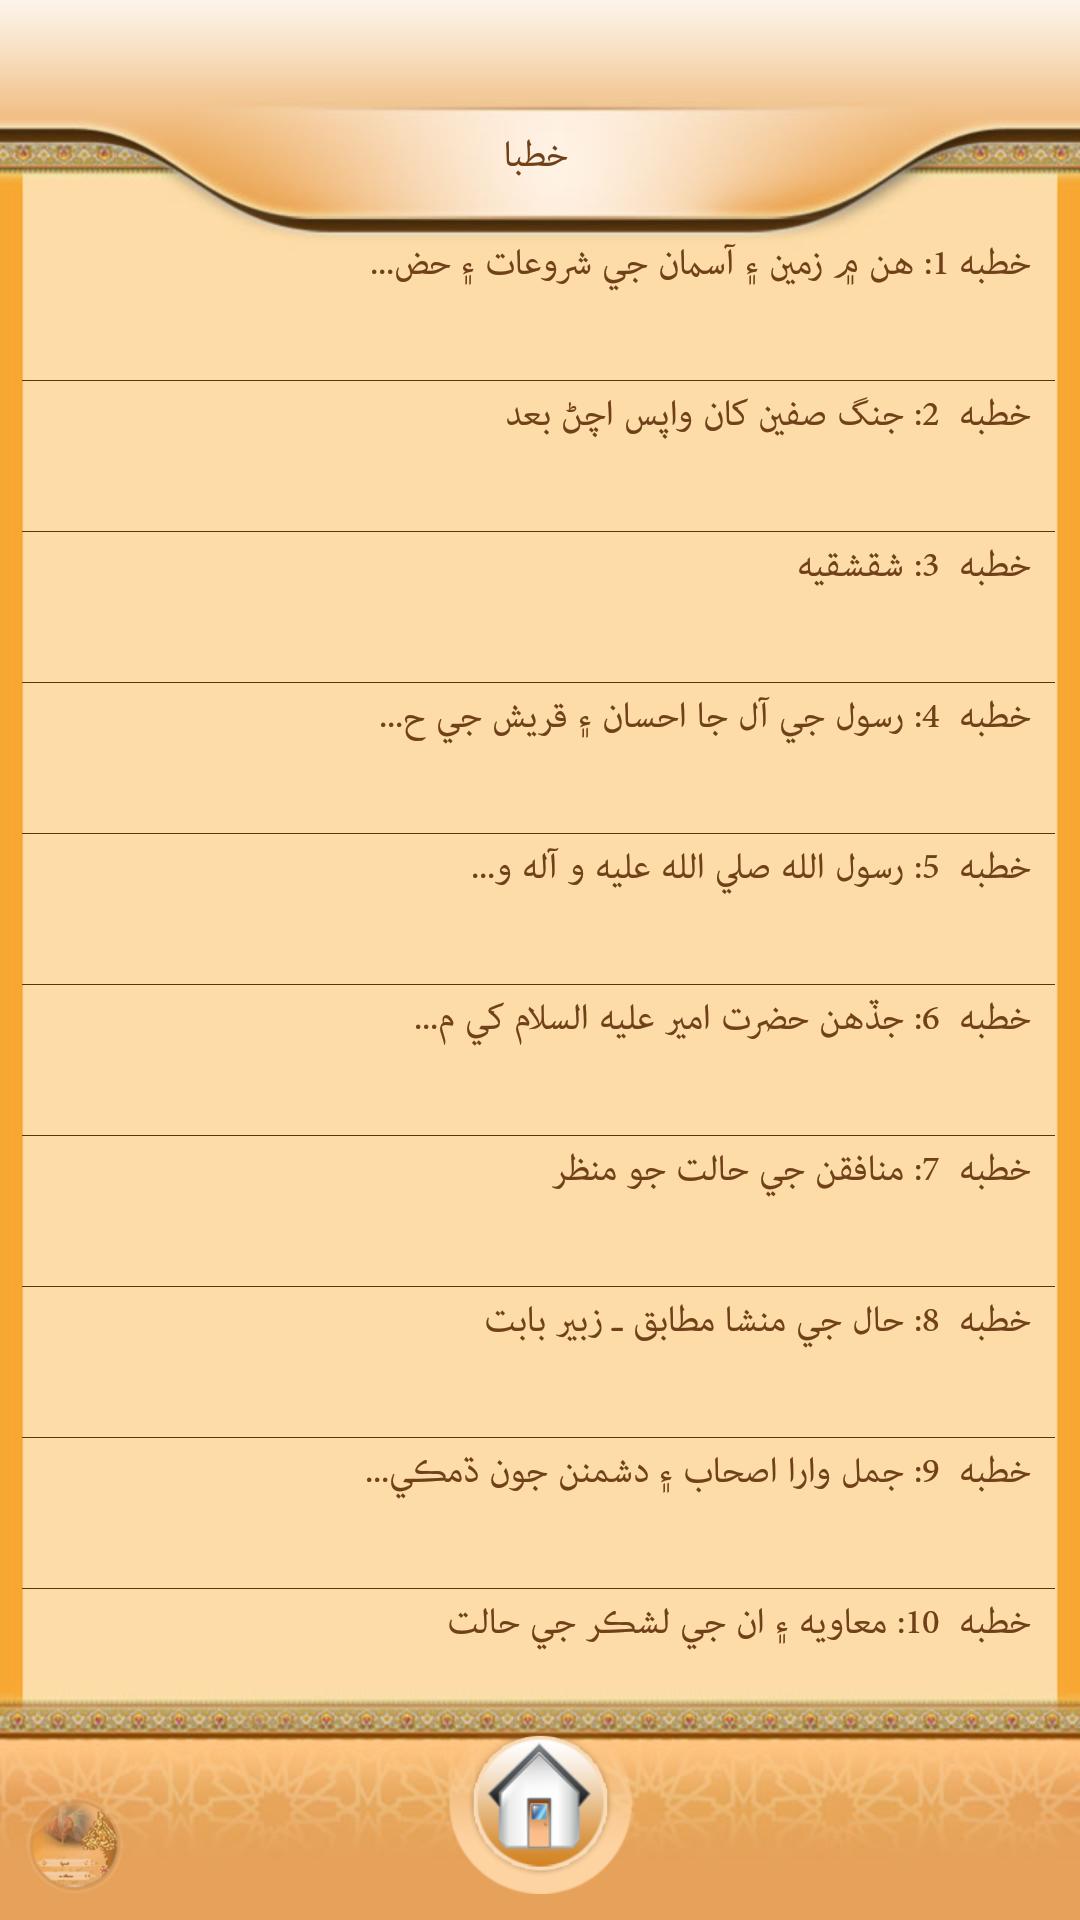 خطبا
خطبه 1: هن ۾ زمين ۽ آسمان جي شروعات ۽ حض...
خطبه  2: جنگ صفين کان واپس اچڻ بعد
خطبه  3: شقشقيه
خطبه  4: رسول جي آل جا احسان ۽ قريش جي ح...
خطبه  5: رسول الله صلي الله عليه و آله و...
خطبه  6: جڏهن حضرت امير عليه السلام کي م...
خطبه  7: منافقن جي حالت جو منظر
خطبه  8: حال جي منشا مطابق ـ زبير بابت
خطبه  9: جمل وارا اصحاب ۽ دشمنن جون ڌمڪي...
خطبه  10: معاويه ۽ ان جي لشڪر جي حالت